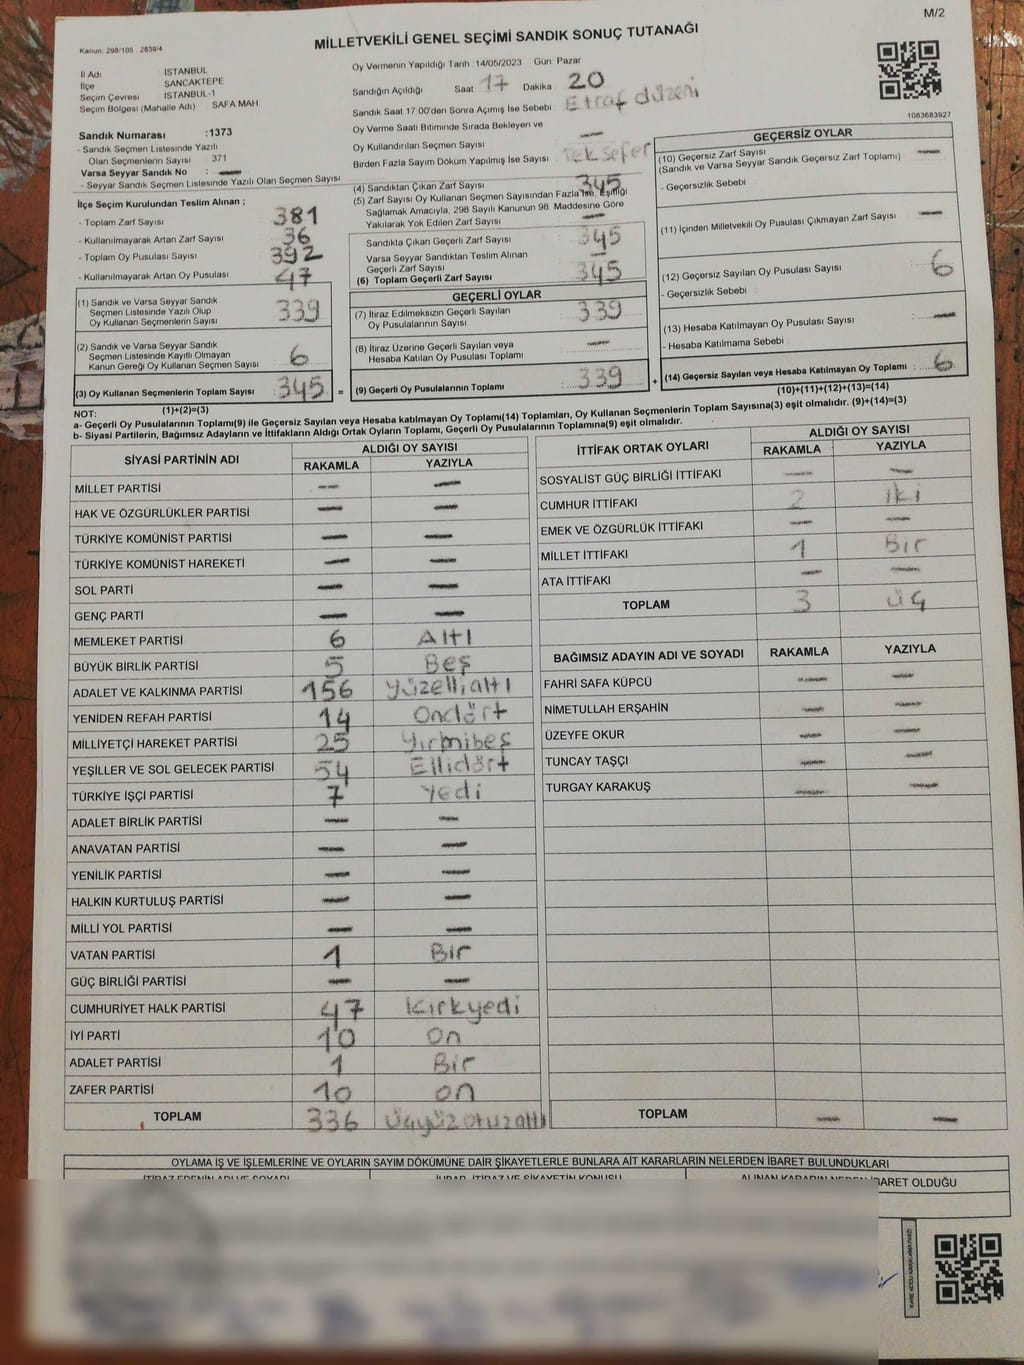 M/2
Kanun. 298/105 , 2839/4
MİLLETVEKİLİ GENEL SEÇİMİ SANDIK SONUÇ TUTANAĞI
İl Adı İSTANBUL
İlçe SANCAKTEPE
Seçim Çevresi İSTANBUL-1
Seçim Bölgesi (Mahalle Adı) SAFA MAH
Sandık Numarası :1373
- Sandık Seçmen Listesinde Yazılı
Olan Seçmenlerin Sayısı 371
Varsa Seyyar Sandık No : —
- Seyyar Sandık Seçmen Listesinde Yazılı Olan Seçmen Sayısı
İlçe Seçim Kurulundan Teslim Alınan ;
- Toplam Zarf Sayısı 381
- Kullanılmayarak Artan Zarf Sayısı 36
- Toplam Oy Pusulası Sayısı 392
- Kullanılmayarak Artan Oy Pusulası 47
(1) Sandık ve Varsa Seyyar Sandık
Seçmen Listesinde Yazılı Olup
Oy Kullanan Seçmenlerin Sayısı 339
(2) Sandık ve Varsa Seyyar Sandık
Seçmen Listesinde Kayıtlı Olmayan
Kanun Gereği Oy Kullanan Seçmen Sayısı 6
(3) Oy Kullanan Seçmenlerin Toplam Sayısı 345 =
(1)+(2)=(3)
Oy Vermenin Yapıldığı Tarih :14/05/2023 Gün Pazar
Sandığın Açıldığı Saat 17 Dakika 20
Sandık Saat 17.00'den Sonra Açımış İse Sebebi Etraf düzeni
Oy Verme Saati Bitiminde Sırada Bekleyen ve
Oy Kullandırılan Seçmen Sayısı —
Birden Fazla Sayım Döküm Yapılmış İse Sayısı Tek sefer
(4) Sandıktan Çıkan Zarf Sayısı 345
(5) Zarf Sayısı Oy Kullanan Seçmen Sayısından Fazla İse, Eşitliği
Sağlamak Amacıyla, 298 Sayılı Kanunun 98. Maddesine Göre
Yakılarak Yok Edilen Zarf Sayısı —
Sandıkta Çıkan Geçerli Zarf Sayısı 345
Varsa Seyyar Sandıktan Teslim Alınan
Geçerli Zarf Sayısı —
(6) Toplam Geçerli Zarf Sayısı 345
GEÇERLİ OYLAR
(7) İtiraz Edilmeksizin Geçerli Sayılan
Oy Pusulalarının Sayısı 339
(8) İtiraz Üzerine Geçerli Sayılan veya
Hesaba Katılan Oy Pusulası Toplamı —
(9) Geçerli Oy Pusulalarının Toplamı 339 +
1083683927
GEÇERSİZ OYLAR
(10) Geçersiz Zarf Sayısı —
(Sandık ve Varsa Seyyar Sandık Geçersiz Zarf Toplamı)
- Geçersizlik Sebebi
(11) İçinden Milletvekili Oy Pusulası Çıkmayan Zarf Sayısı —
(12) Geçersiz Sayılan Oy Pusulası Sayısı 6
- Geçersizlik Sebebi :
(13) Hesaba Katılmayan Oy Pusulası Sayısı —
- Hesaba Katılmama Sebebi :
(14) Geçersiz Sayılan veya Hesaba Katılmayan Oy Toplamı : 6
(10)+(11)+(12)+(13)=(14)
NOT:
a- Geçerli Oy Pusulalarının Toplamı(9) ile Geçersiz Sayılan veya Hesaba katılmayan Oy Toplamı(14) Toplamları, Oy Kullanan Seçmenlerin Toplam Sayısına(3) eşit olmalıdır. (9)+(14)=(3)
b- Siyasi Partilerin, Bağımsız Adayların ve İttifakların Aldığı Ortak Oyların Toplamı, Geçerli Oy Pusulalarının Toplamına(9) eşit olmalıdır.
SİYASİ PARTİNİN ADI ALDIĞI OY SAYISI
RAKAMLA YAZIYLA
MİLLET PARTİSİ — —
HAK VE ÖZGÜRLÜKLER PARTİSİ — —
TÜRKİYE KOMÜNİST PARTİSİ — —
TÜRKİYE KOMÜNİST HAREKETİ — —
SOL PARTİ — —
GENÇ PARTİ — —
MEMLEKET PARTİSİ 6 Altı
BÜYÜK BİRLİK PARTİSİ 5 Beş
ADALET VE KALKINMA PARTİSİ 156 YüzelliAltı
YENİDEN REFAH PARTİSİ 14 Ondört
MİLLİYETÇİ HAREKET PARTİSİ 25 Yirmibeş
YEŞİLLER VE SOL GELECEK PARTİSİ 54 Ellidört
TÜRKİYE İŞÇİ PARTİSİ 7 Yedi
ADALET BİRLİK PARTİSİ — —
ANAVATAN PARTİSİ — —
YENİLİK PARTİSİ — —
HALKIN KURTULUŞ PARTİSİ — —
MİLLİ YOL PARTİSİ — —
VATAN PARTİSİ 1 Bir
GÜÇ BİRLİĞİ PARTİSİ — —
CUMHURİYET HALK PARTİSİ 47 Kırkyedi
İYİ PARTİ 10 On
ADALET PARTİSİ 1 Bir
ZAFER PARTİSİ 10 on
TOPLAM 336 üçyüzotuzaltı
İTTİFAK ORTAK OYLARI ALDIĞI OY SAYISI
RAKAMLA YAZIYLA
SOSYALİST GÜÇ BİRLİĞİ İTTİFAKI — —
CUMHUR İTTİFAKI 2 iki
EMEK VE ÖZGÜRLÜK İTTİFAKI — —
MİLLET İTTİFAKI 1 Bir
ATA İTTİFAKI — —
TOPLAM 3 üç
BAĞIMSIZ ADAYIN ADI VE SOYADI RAKAMLA YAZIYLA
FAHRİ SAFA KÜPCÜ — —
NİMETULLAH ERŞAHİN — —
ÜZEYFE OKUR — —
TUNCAY TAŞÇI — —
TURGAY KARAKUŞ — —
TOPLAM — —
OYLAMA İŞ VE İŞLEMLERİNE VE OYLARIN SAYIM DÖKÜMÜNE DAİR ŞİKAYETLERLE BUNLARA AİT KARARLARIN NELERDEN İBARET BULUNDUKLARI
İTİRAZ EDENİN ADI VE SOYADI İHBAR, İTİRAZ VE ŞİKAYETİN KONUSU ALINAN KARARIN NEDEN İBARET OLDUĞU